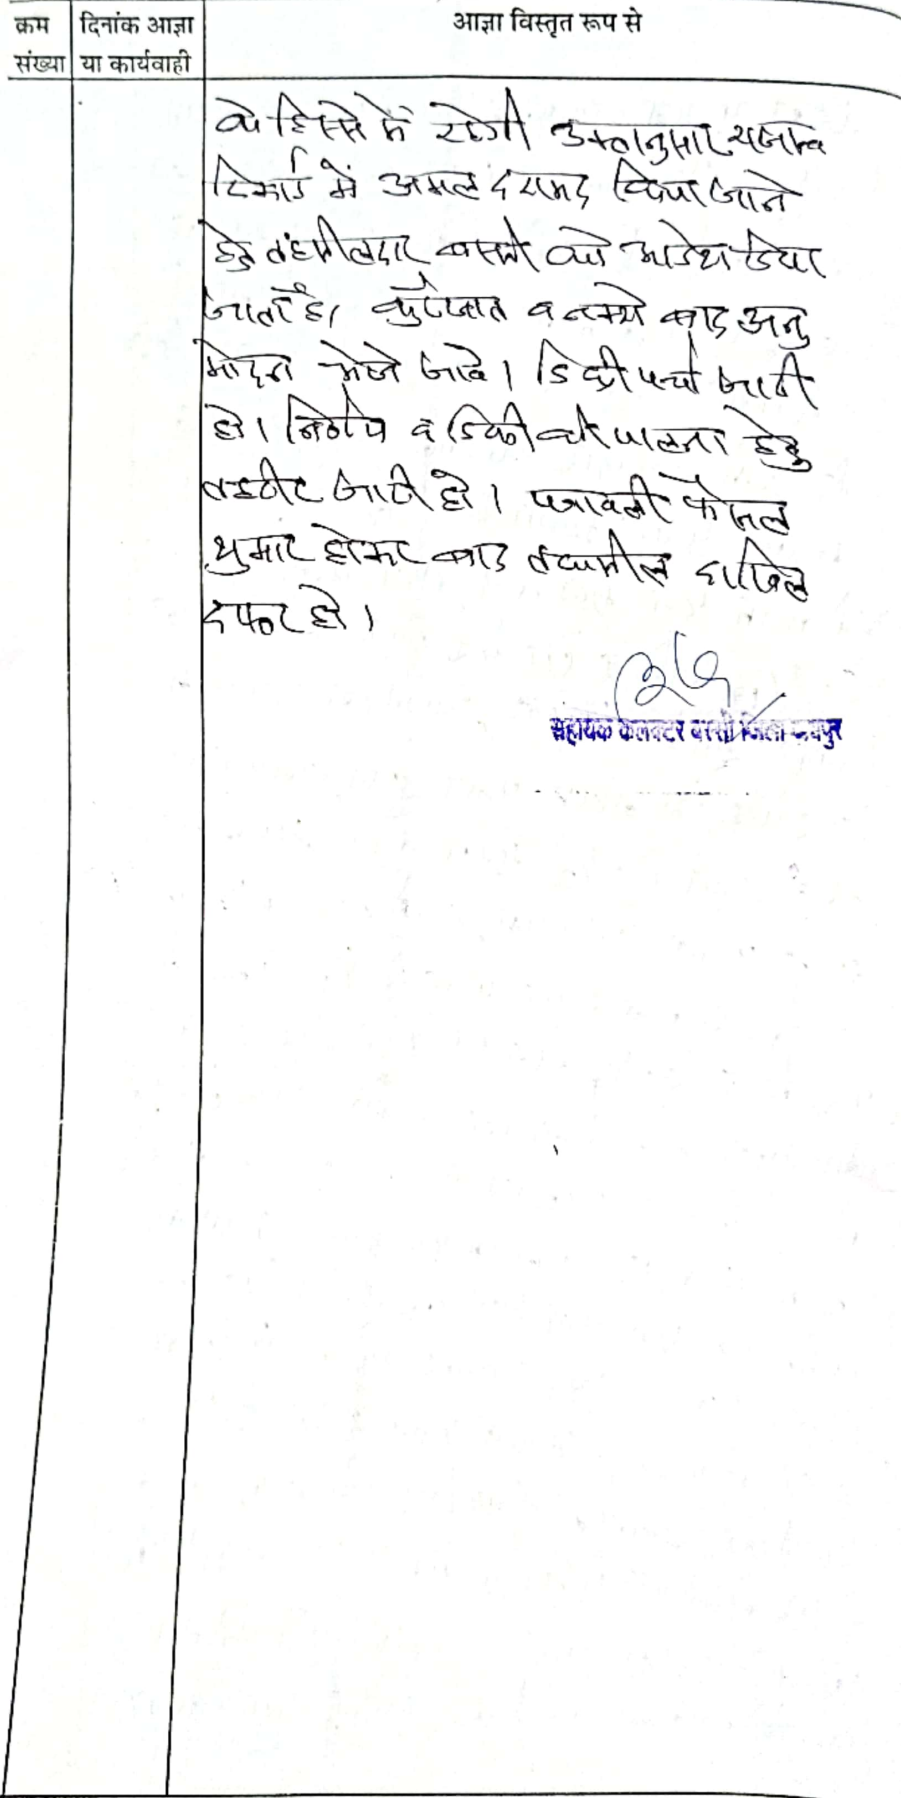 क्रम दिनांक आज्ञा आज्ञा विस्तृत रूप से
संख्या या कार्यवाही
के हिस्से में रहेगी उक्तानुसार राजस्व
रिकार्ड में अमल दरामद किया जाने
हेतु तहसीलदार बस्सी को आदेश दिया
जाता है। कुर्रेजात व नक्शे बाद अनु
मोदन भेजे जावे। डिक्री पर्चा जारी
हो। निर्णय व डिक्री की पालना हेतु
तहरीर जारी हो। पत्रावली फैसल
शुमार होकर बाद तकमील दाखिल
दफ्तर हो।
सहायक कलक्टर बस्सी जिला जयपुर